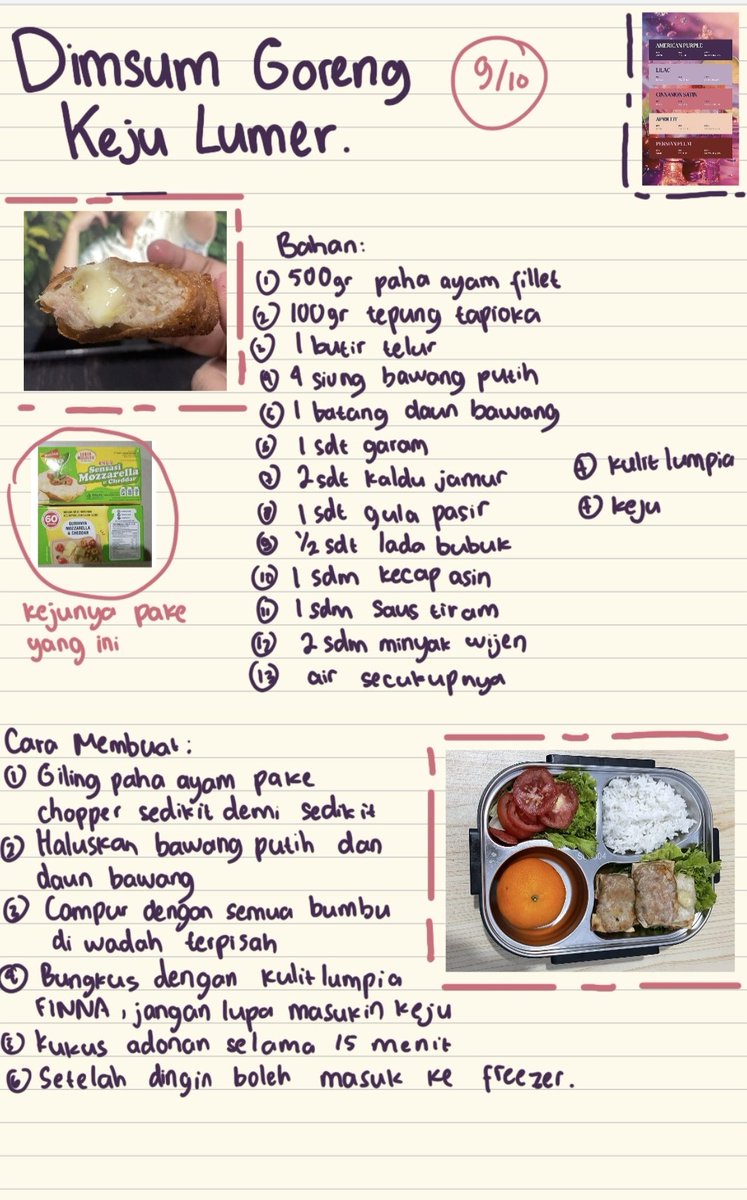 Dimsum Goreng
Keju Lumer.
9/10
AMERICAN PURPLE
LILAC
CINNAMON SATIN
APRICOT
PERSIAN PLUM
Bahan:
① 500gr paha ayam fillet
② 100gr tepung tapioka
③ 1 butir telur
④ 4 siung bawang putih
⑤ 1 batang daun bawang
⑥ 1 sdt garam
⑦ 2 sdt kaldu jamur
⑧ 1 sdt gula pasir
⑨ ½ sdt lada bubuk
⑩ 1 sdm kecap asin
⑪ 1 sdm saus tiram
⑫ 2 sdm minyak wijen
⑬ air secukupnya
⊕ kulit lumpia
⊕ keju
Sensasi
Mozzarella
Cheddar
60
GURIHNYA
MOZZARELLA
& CHEDDAR
kejunya pake
yang ini
Cara Membuat:
① Giling paha ayam pake
chopper sedikit demi sedikit
② Haluskan bawang putih dan
daun bawang
③ Campur dengan semua bumbu
di wadah terpisah
④ Bungkus dengan kulit lumpia
FINNA, jangan lupa masukin keju
⑤ kukus adonan selama 15 menit
⑥ Setelah dingin boleh masuk ke freezer.